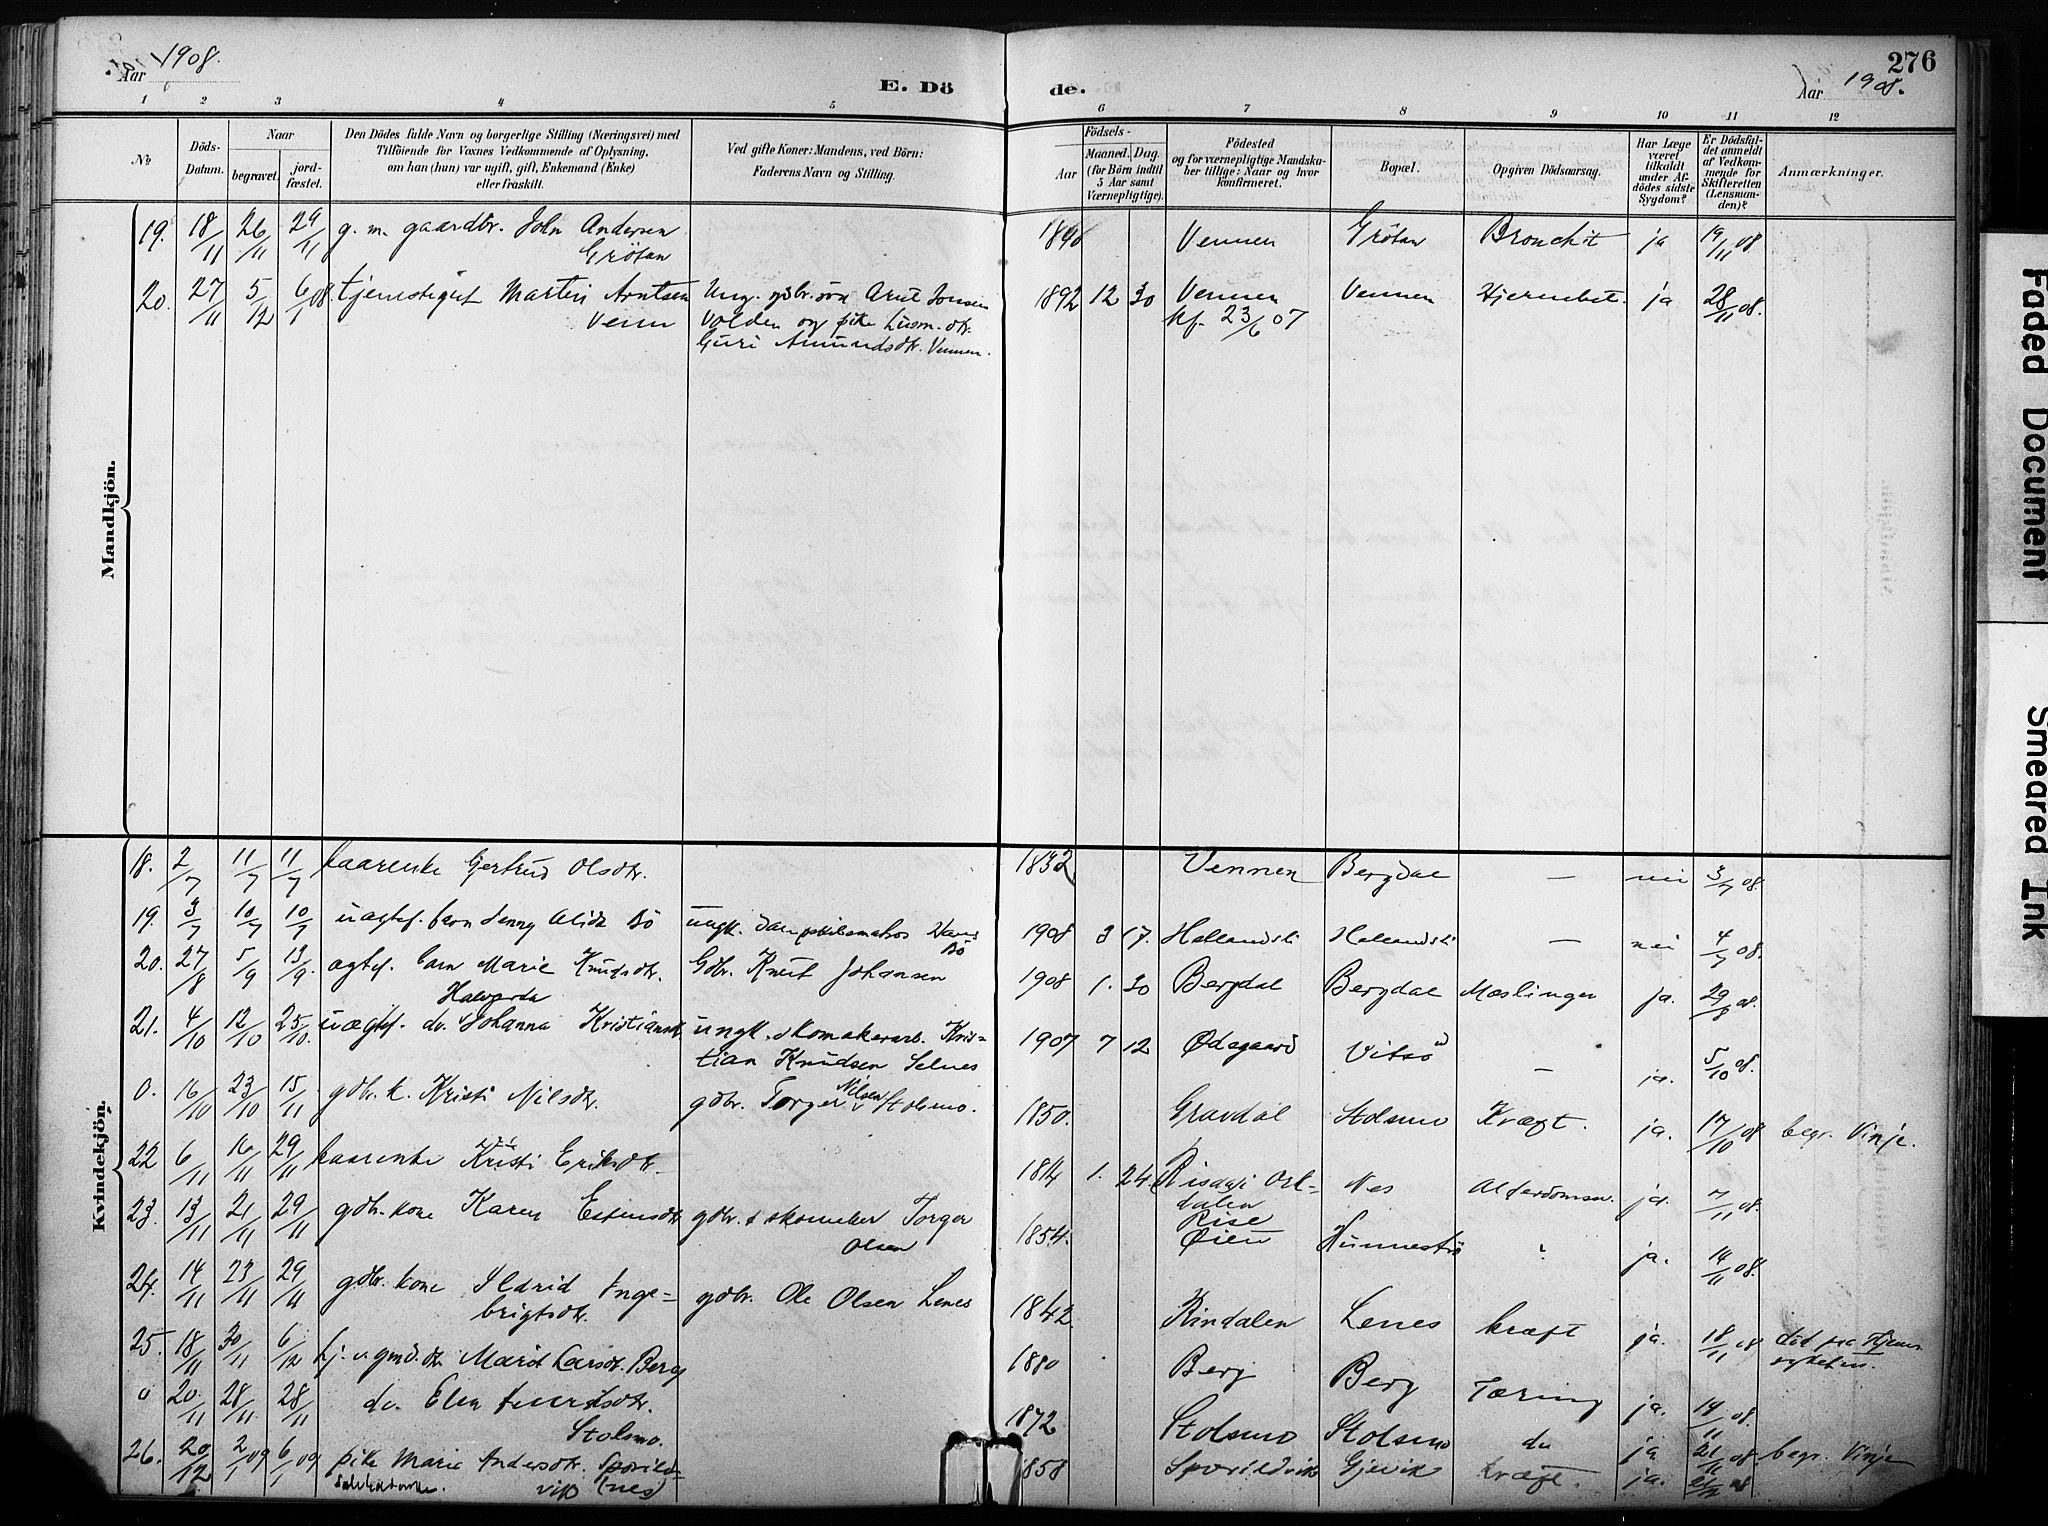 Aar 1908.
E. Dö
de.
276
Aar 1908.
1 2 3 4 5 6 7 8 9 10 11 12
№
Döds-
Datum.
Naar
begravet.
jord-
fæstet.
Den Dödes fulde Navn og borgerlige Stilling (Næringsvei) med
Tilföiende for Voxnes Vedkommende af Oplysning,
om han (hun) var ugift, gift, Enkemand (Enke)
eller fraskilt.
Ved gifte Koner: Mandens, ved Börn:
Faderens Navn og Stilling.
Födsels-
Aar
Maaned. Dag.
(for Börn indtil
5 Aar samt
Værnepligtige).
Födested
og for værnepligtige Mandska-
ber tillige: Naar og hvor
konfirmeret.
Bopæl.
Opgiven Dödsaarsag.
Har Læge
været
tilkaldt
under Af-
dödes sidste
Sygdom?
Er Dödsfal-
det anmeldt
af Vedkom-
mende for
Skifteretten
(Lensman-
den)?
Anmærkninger.
Mandkjön.
19. 18/11 26/11 29/11 g. m. gaardbr. John Andersen Vennen Grötan Bronchit ja 19/11 08
Grötan
20. 27/11 5/12 6/1 08. tjenestegut Martin Arntsen Ung. gdbr.sön Arnt Jonsen 1892 12 30 Vennen Vennen Hjernebet. ja 28/11 08.
Venn Volden og pike Lusm. dtr. kf. 23/6 07
Guri Amundsdtr. Vennen.
Kvindekjön.
18. 2/7 11/7 11/7 kaarenke Gertrud Olsdtr. 1832 Vennen Bergdal — nei 3/7 08
19. 3/7 10/7 10/7 uægtef. barn Jenny Alida Bö ungk. 1908 3 17. Hellandsli Hellandsli — nei 4/7 08.
Bö
20. 27/8 5/9 13/9. ægtef. barn Marie Knudsdtr. Gdbr. Knut Johansen 1908 1. 30 Bergdal Bergdal Mæslinger ja. 29/8 08.
Halvarda
21. 4/10 12/10 25/10. uægtef. do. Johanna Kristiansdtr ungk. skomakerarb. Kris- 1907 7 12 Ødegaard Vitsö — ja. 5/10 08.
tian Knudsen Selnes
0. 16/10 23/10 15/11 gdbr. k. Kristi Nilsdtr. gdbr. Torger Nilsen Stolsmo. 1850. Gravdal Stolsmo Kræft. ja. 17/10 08 begr. Vinje.
22 6/11 16/11 29/11 kaarenke Kristi Eriksdtr. 1814 1. 24. Nes Alderdomssv. ja. 7/11 08.
dalen
23. 13/11 21/11 29/11 gdbr. kone Karen Estensdtr gdbr. & skomaker Torger 1854. Rise
Olsen Øien ja. 14/11 08.
24. 14/11 23/11 29/11 gdbr. kone Sldrid Inge- gdbr. Ole Olsen Lenes 1842. Rindalen Lenes kræft ja. 18/11 08
brigtsdtr.
25. 18/11 30/11 6/12 Marit Larsdtr. Berg 1880 Berg Berg Tæring ja.
0 20/11 28/11. 28/11 do. 1872 Stolsmo Stolsmo do ja 21/11 08 begr. Vinje
Stolsmo.
26. 20/12 2/1 09 6/1 09 pike Marie Andersdtr. 1858 Gjevik Kræft. ja.
Faded Document
Smeared Ink